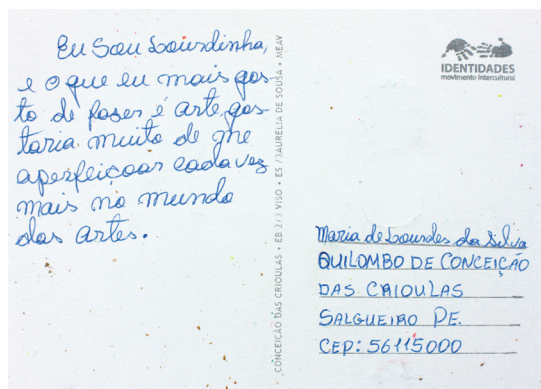 Eu Sou Lourdinha,
e o que eu mais gos-
to de fazer é arte, gos-
taria muito de me
aperfeiçoar cada vez
mais no mundo
das artes.
CONCEIÇÃO DAS CRIOULAS • EB 2/3 VISO • ES /3AURELIA DE SOUSA • MEAV
IDENTIDADES
movimento intercultural
Maria de Lourdes da Silva
QUILOMBO DE CONCEIÇÃO
DAS CRIOULAS
SALGUEIRO PE.
CEP: 56115000